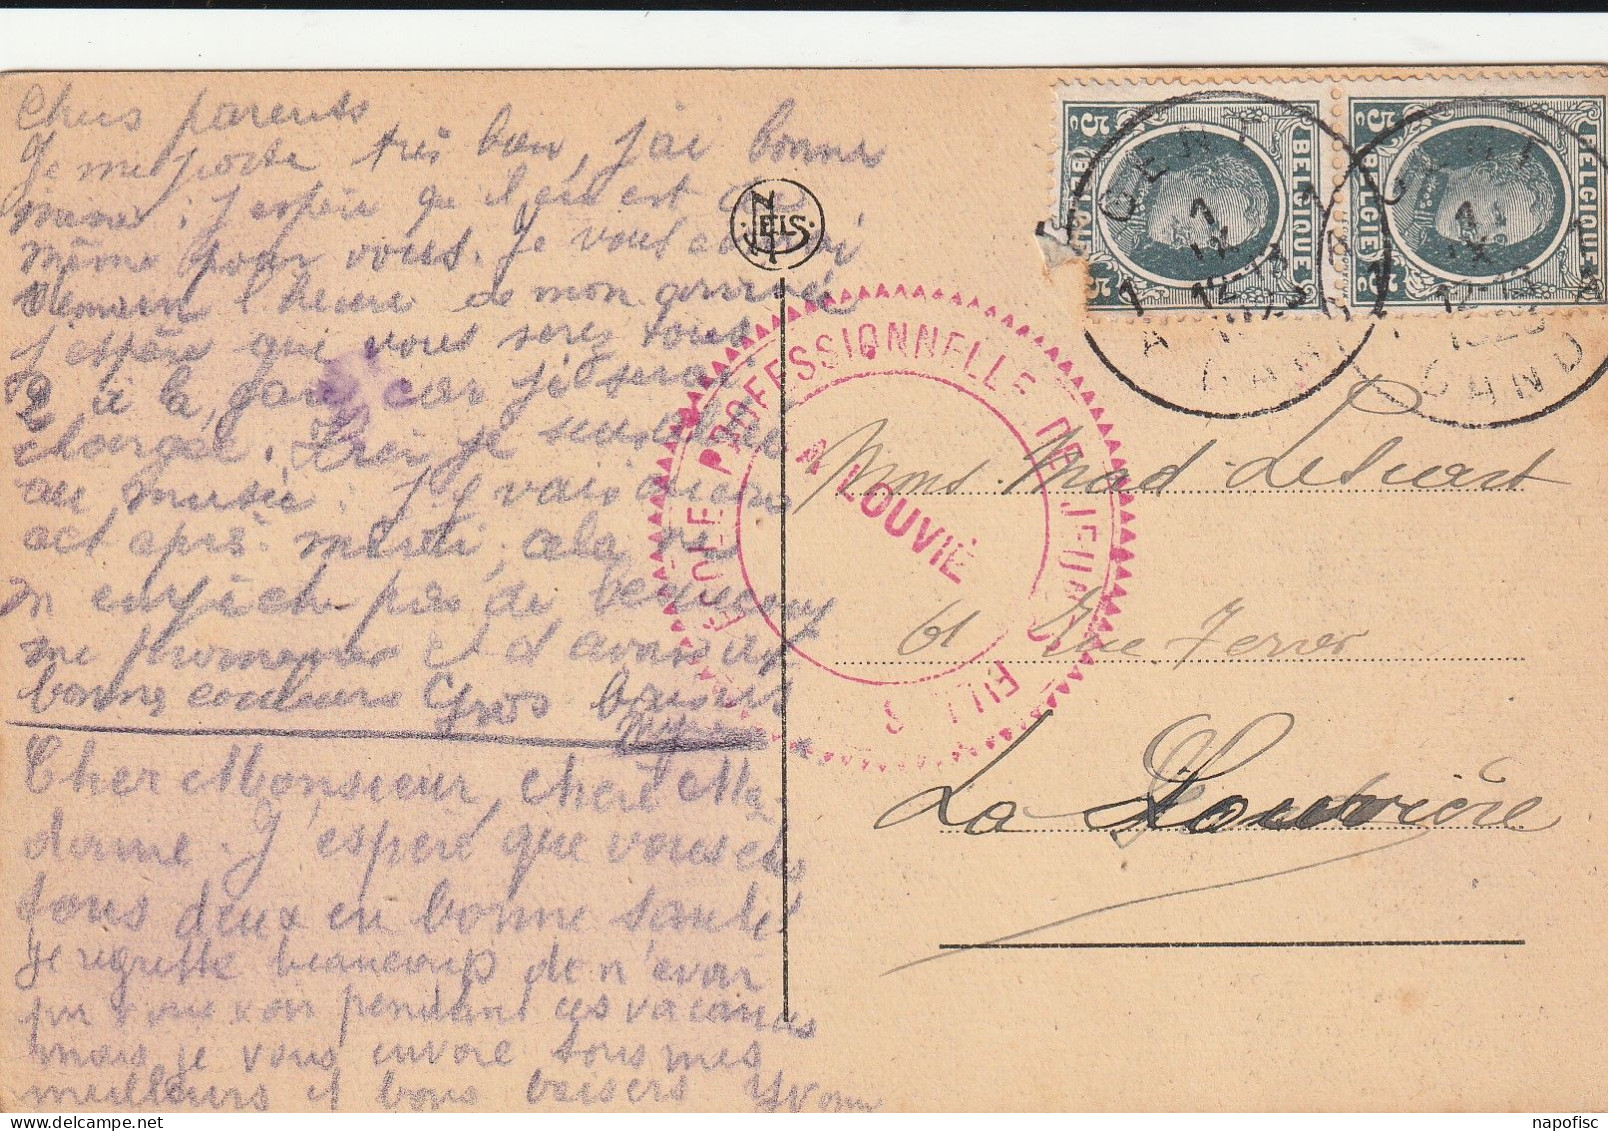 Chers parents
Je me porte très bien, j'ai bonne
mine : j'espère qu'il en est de
même pour vous. Je vous
demain l'heure de mon arrivée
J'espère que vous serez tous
2 à la gare car je serai
chargée. Hier je suis allée
au musée. J'y vais
après midi, à la
on enfiche près de beaucoup
me promener et d'avoir
bonnes couleurs Gros baisers
Cher Monsieur, chère Ma-
dame. J'espère que vous êtes
tous deux en bonne santé
Je regrette beaucoup de n'avoir
pu vous voir pendant ces vacances
mais je vous envoie tous mes
meilleurs et bons baisers Yvonne
NELS
5c BELGIQUE 5c
5c BELGIQUE 5c
GENT 1
1
IX
12-13
1 GAND
GENT 1
1
IX
12-13
1 GAND
ÉCOLE PROFESSIONNELLE DE JEUNES FILLES
LA LOUVIÈ
Mons Mad Letuart
61 Rue Ferrer
La Louvière
napofisc